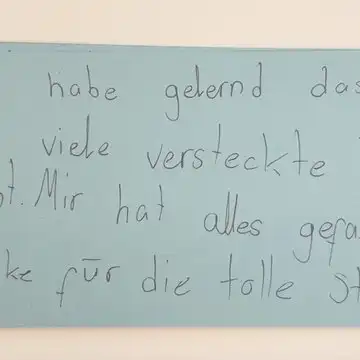 habe gelernd das
viele versteckte
t. Mir hat alles gefa
ke für die tolle St